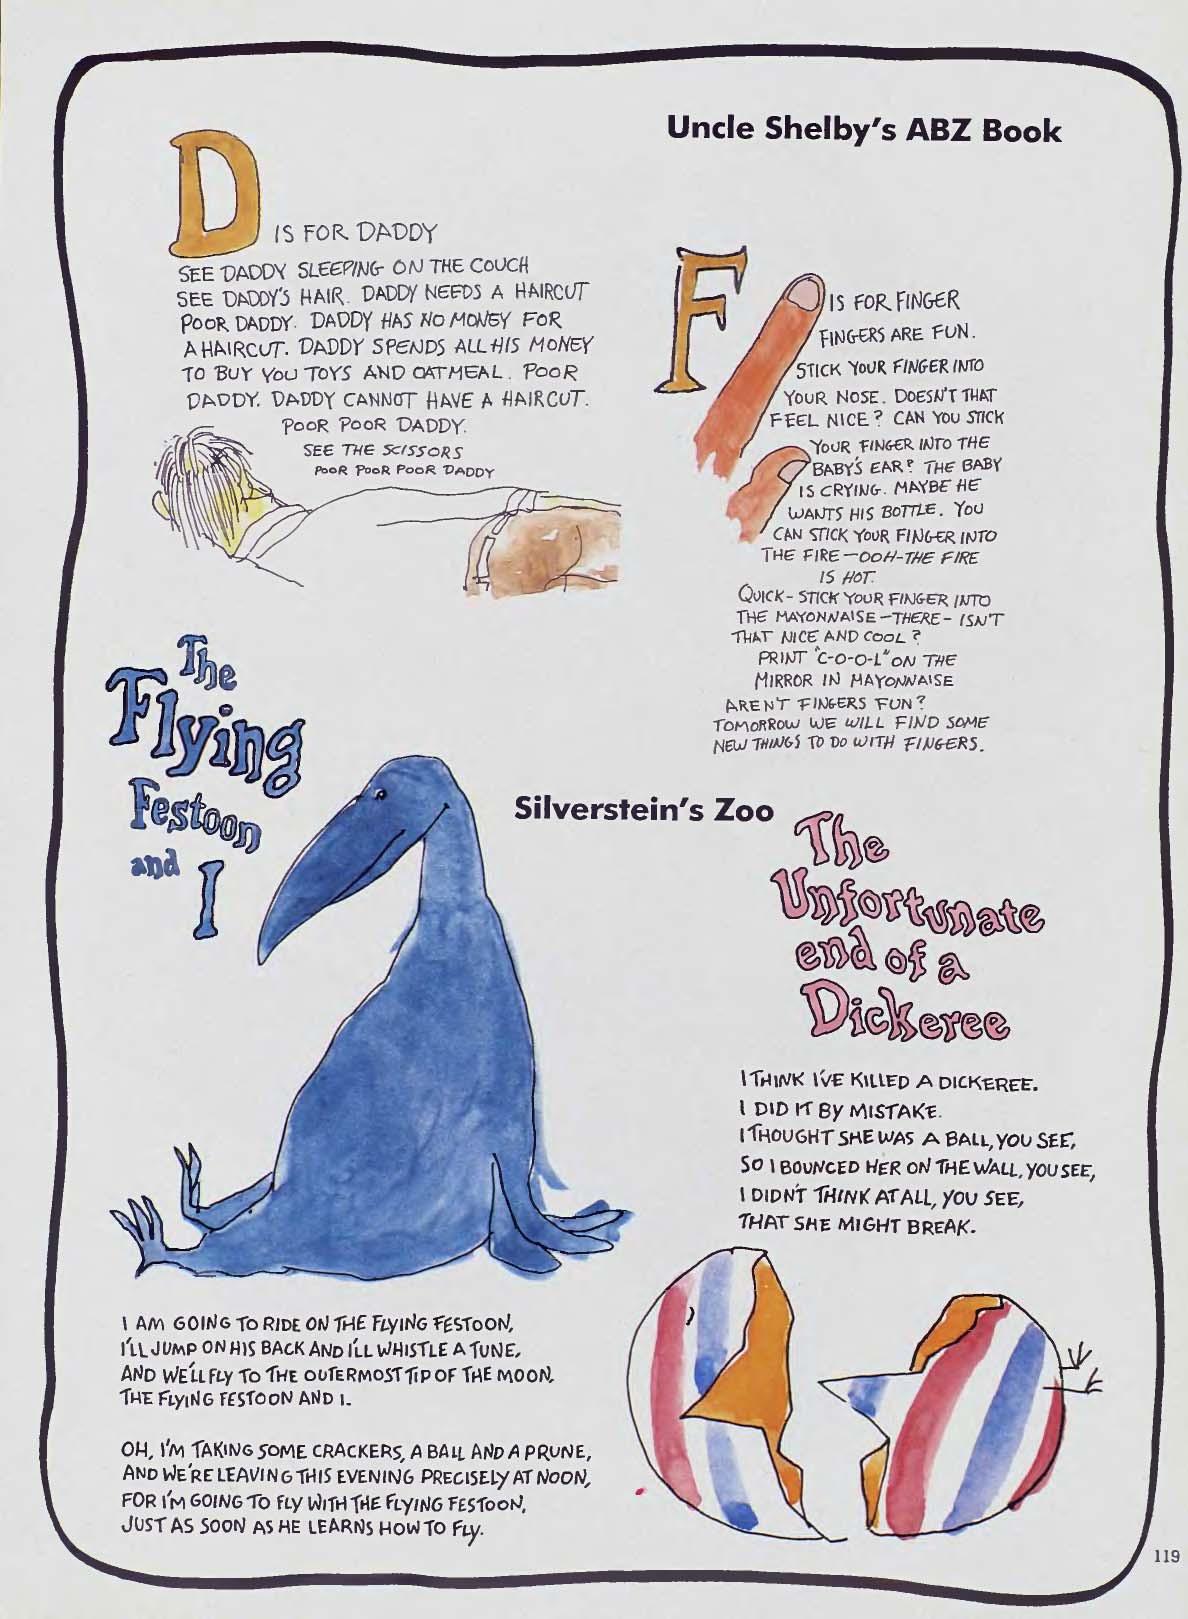 Uncle Shelby's ABZ Book
D IS FOR DADDY
SEE DADDY SLEEPING ON THE COUCH
SEE DADDY'S HAIR. DADDY NEEDS A HAIRCUT
POOR DADDY. DADDY HAS NO MONEY FOR
A HAIRCUT. DADDY SPENDS ALL HIS MONEY
TO BUY YOU TOYS AND OATMEAL. POOR
DADDY. DADDY CANNOT HAVE A HAIRCUT.
POOR POOR DADDY.
SEE THE SCISSORS
POOR POOR POOR DADDY
F IS FOR FINGER
FINGERS ARE FUN.
STICK YOUR FINGER INTO
YOUR NOSE. DOESN'T THAT
FEEL NICE? CAN YOU STICK
YOUR FINGER INTO THE
BABY'S EAR? THE BABY
IS CRYING. MAYBE HE
WANTS HIS BOTTLE. YOU
CAN STICK YOUR FINGER INTO
THE FIRE—OOH-THE FIRE
IS HOT.
QUICK- STICK YOUR FINGER INTO
THE MAYONNAISE—THERE- ISN'T
THAT NICE AND COOL?
PRINT "C-O-O-L" ON THE
MIRROR IN MAYONNAISE
ARENT FINGERS FUN?
TOMORROW WE WILL FIND SOME
NEW THINGS TO DO WITH FINGERS.
Silverstein's Zoo
The
Flying
Festoon
and I
I AM GOING TO RIDE ON THE FLYING FESTOON,
I'LL JUMP ON HIS BACK AND I'LL WHISTLE A TUNE,
AND WE'LL FLY TO THE OUTERMOST TIP OF THE MOON,
THE FLYING FESTOON AND I.
OH, I'M TAKING SOME CRACKERS, A BALL AND A PRUNE,
AND WE'RE LEAVING THIS EVENING PRECISELY AT NOON,
FOR I'M GOING TO FLY WITH THE FLYING FESTOON,
JUST AS SOON AS HE LEARNS HOW TO FLY.
The
Unfortunate
end of a
Dickeree
I THINK I'VE KILLED A DICKEREE.
I DID IT BY MISTAKE.
I THOUGHT SHE WAS A BALL, YOU SEE,
SO I BOUNCED HER ON THE WALL, YOU SEE,
I DIDN'T THINK AT ALL, YOU SEE,
THAT SHE MIGHT BREAK.
119